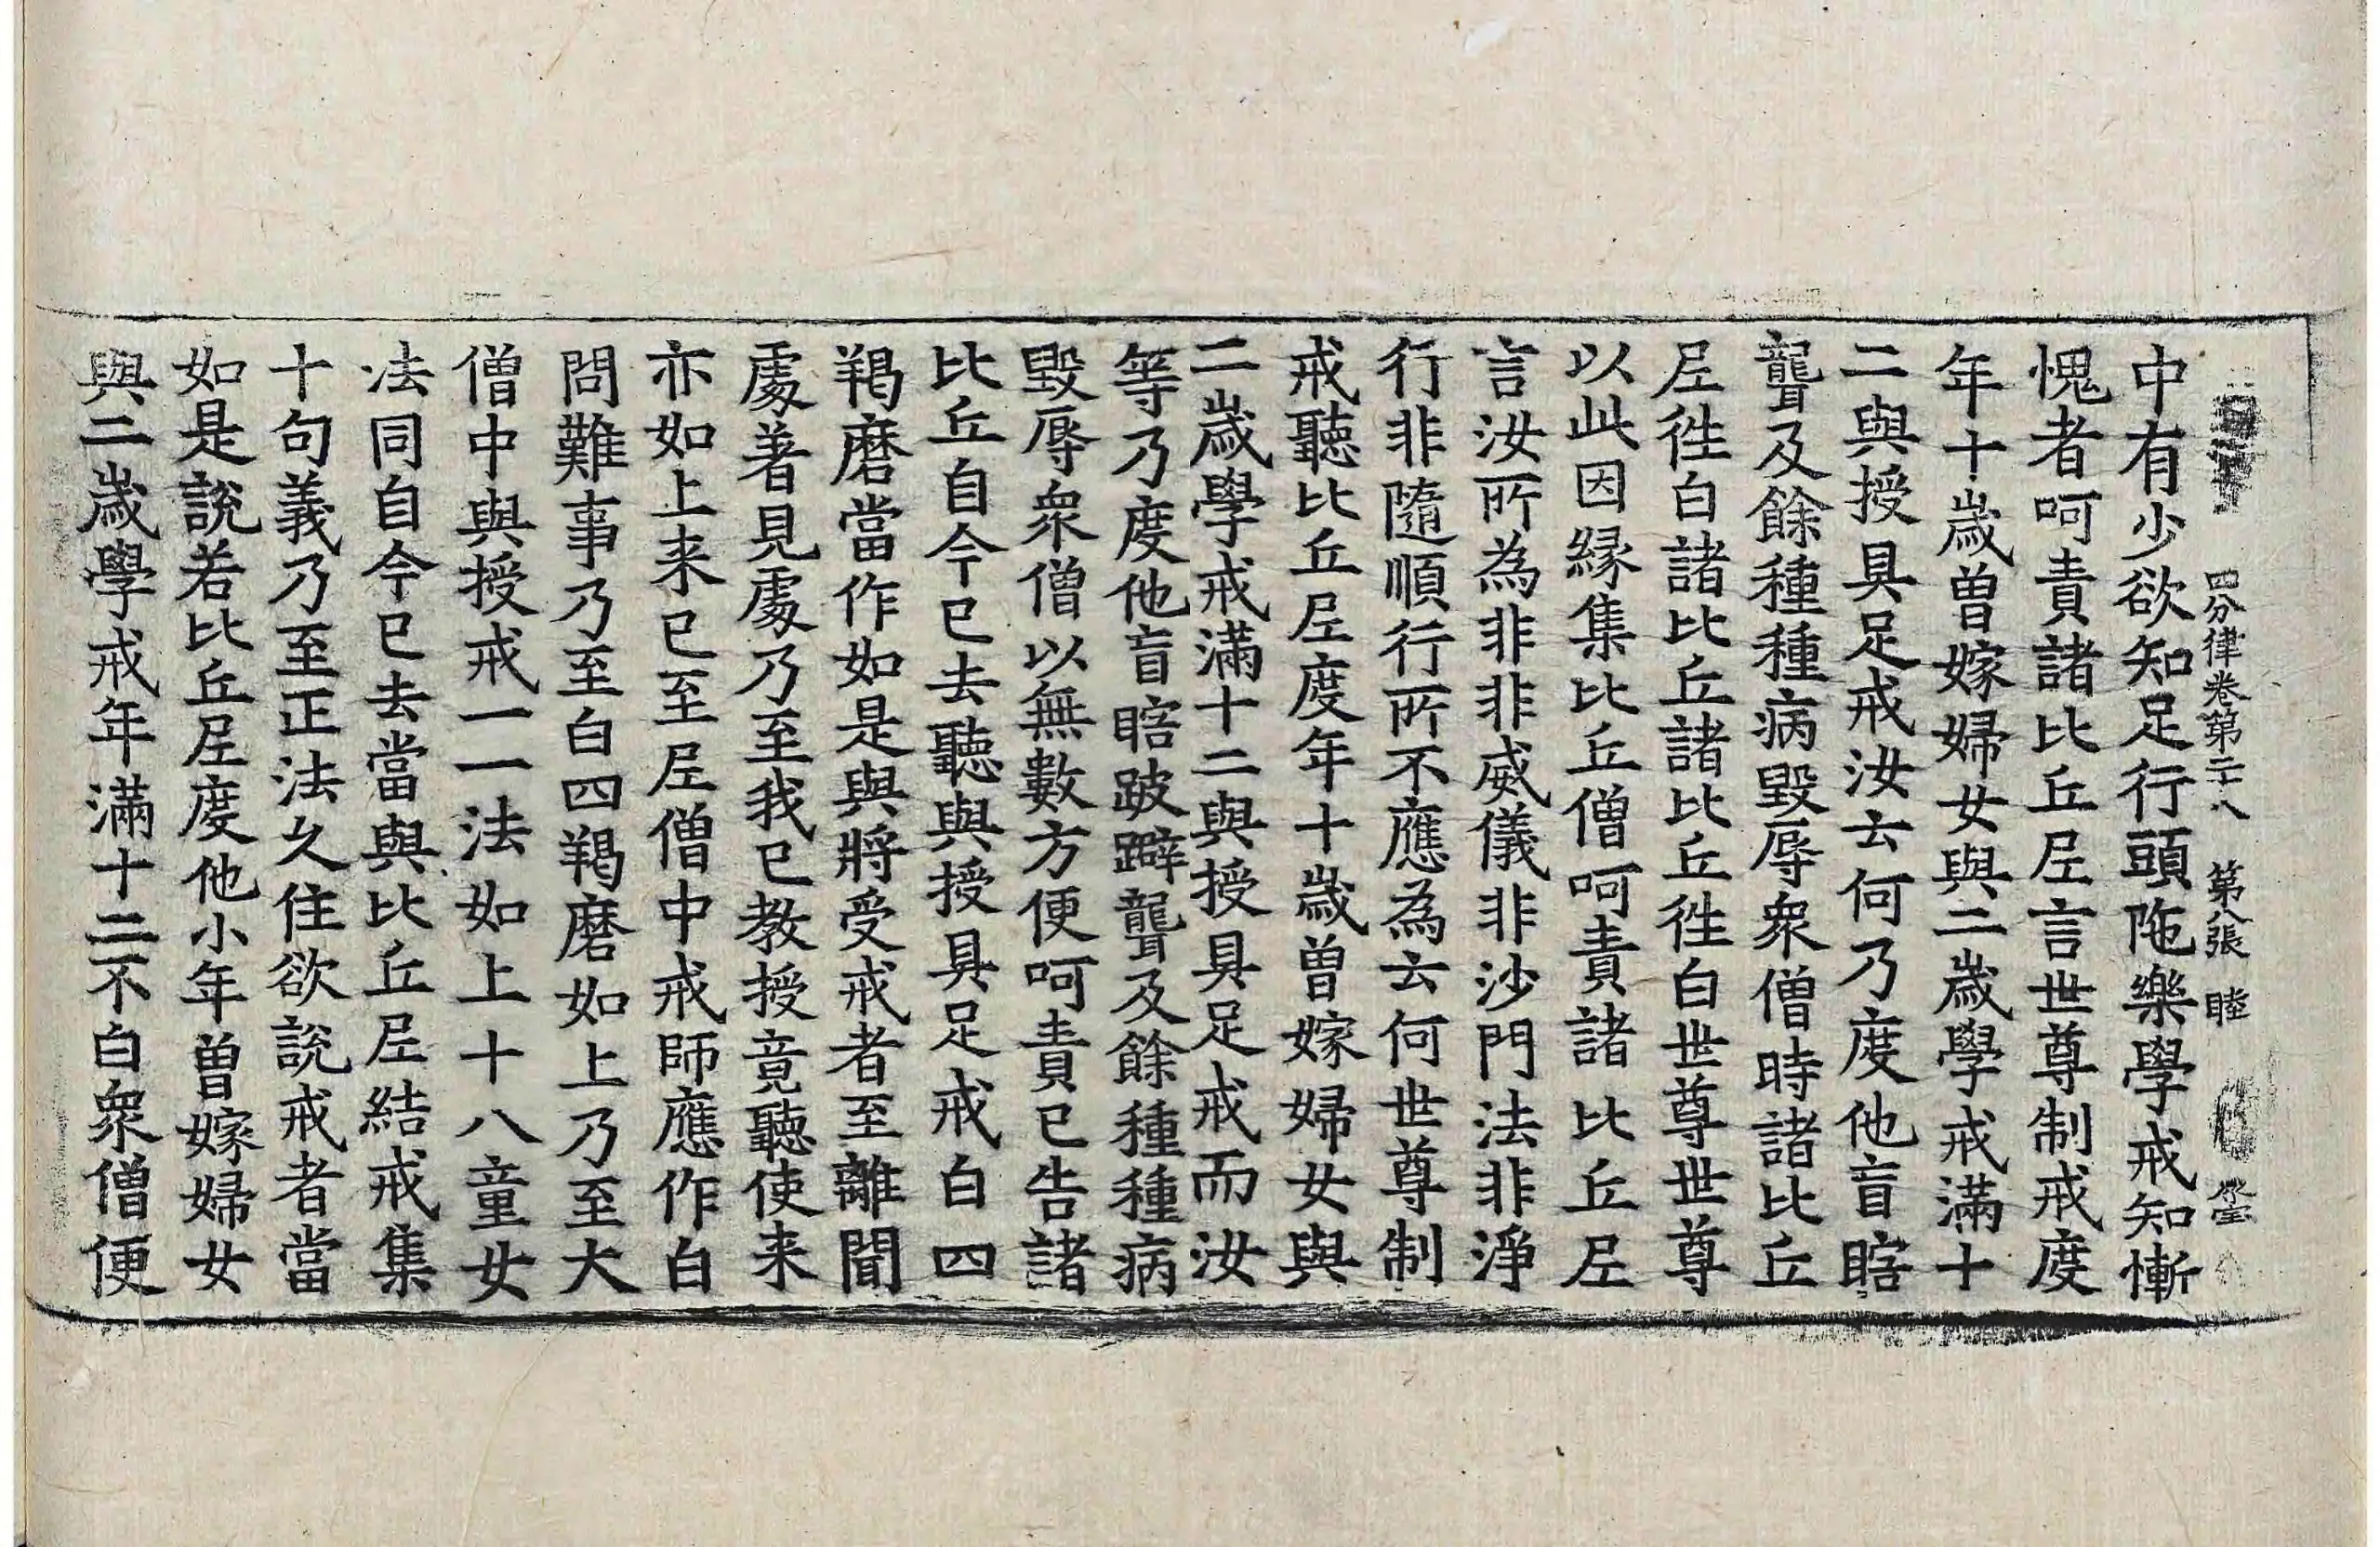 四分律卷第二十八　第八張　睦
中有少欲知足行頭陁樂學戒知慚
愧者呵責諸比丘尼言世尊制戒度
年十歲曽嫁婦女與二歲學戒滿十
二與授具足戒汝云何乃度他盲瞎
聾及餘種種病毀辱衆僧時諸比丘
尼徃白諸比丘諸比丘徃白世尊世尊
以此因緣集比丘僧呵責諸比丘尼
言汝所為非非威儀非沙門法非淨
行非隨順行所不應為云何世尊制
戒聽比丘尼度年十歲曽嫁婦女與
二歲學戒滿十二與授具足戒而汝
等乃度他盲瞎跛躃聾及餘種種病
毀辱衆僧以無數方便呵責已告諸
比丘自今已去聽與授具足戒白四
羯磨當作如是與將受戒者至離聞
處著見處乃至我已教授竟聽使来
亦如上来已至尼僧中戒師應作白
問難事乃至白四羯磨如上乃至大
僧中與授戒一一法如上十八童女
法同自今已去當與比丘尼結戒集
十句義乃至正法久住欲說戒者當
如是說若比丘尼度他小年曽嫁婦女
與二歲學戒年滿十二不白衆僧便